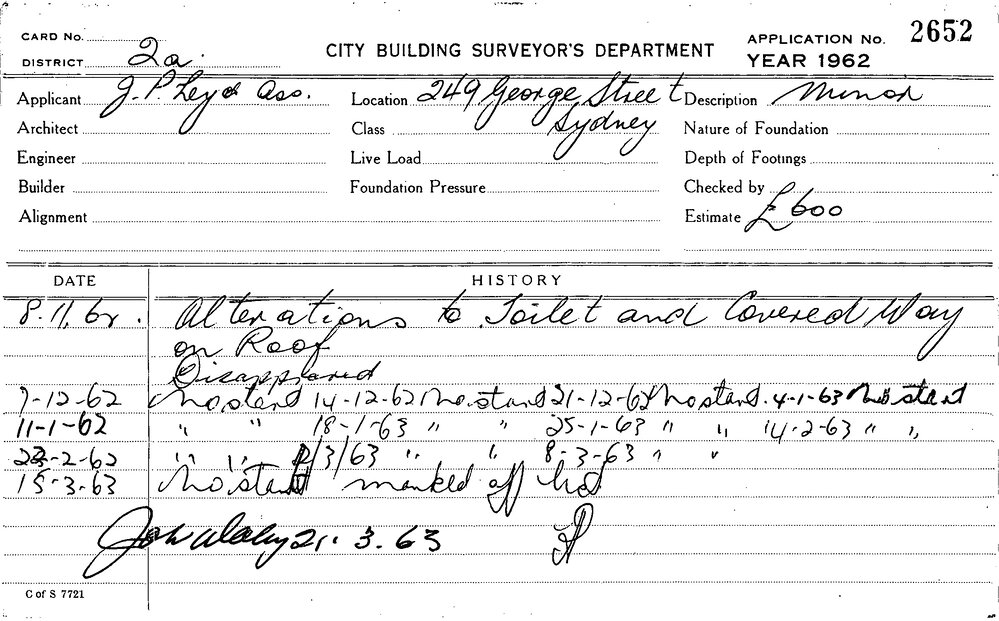 CARD No.
DISTRICT 2a.
CITY BUILDING SURVEYOR'S DEPARTMENT
APPLICATION No. 2652
YEAR 1962
Applicant J. P. Ley & Ass. Location 249 George Street Description Minor
Architect Class Sydney Nature of Foundation
Engineer Live Load Depth of Footings
Builder Foundation Pressure Checked by
Alignment Estimate £600
DATE HISTORY
8.11.62. Alterations to Toilet and Covered Way
on Roof
Disapproved
7-12-62 No start 14-12-62 No. start 21-12-62 No start. 4-1-63 No start
11-1-62 " " 18-1-63 " " 25-1-63 " " 14-2-63 " "
22-2-62 " " /3/63 " " 8-3-63 " "
15-3-63 No. start marked off list
21.3.63
C of S 7721